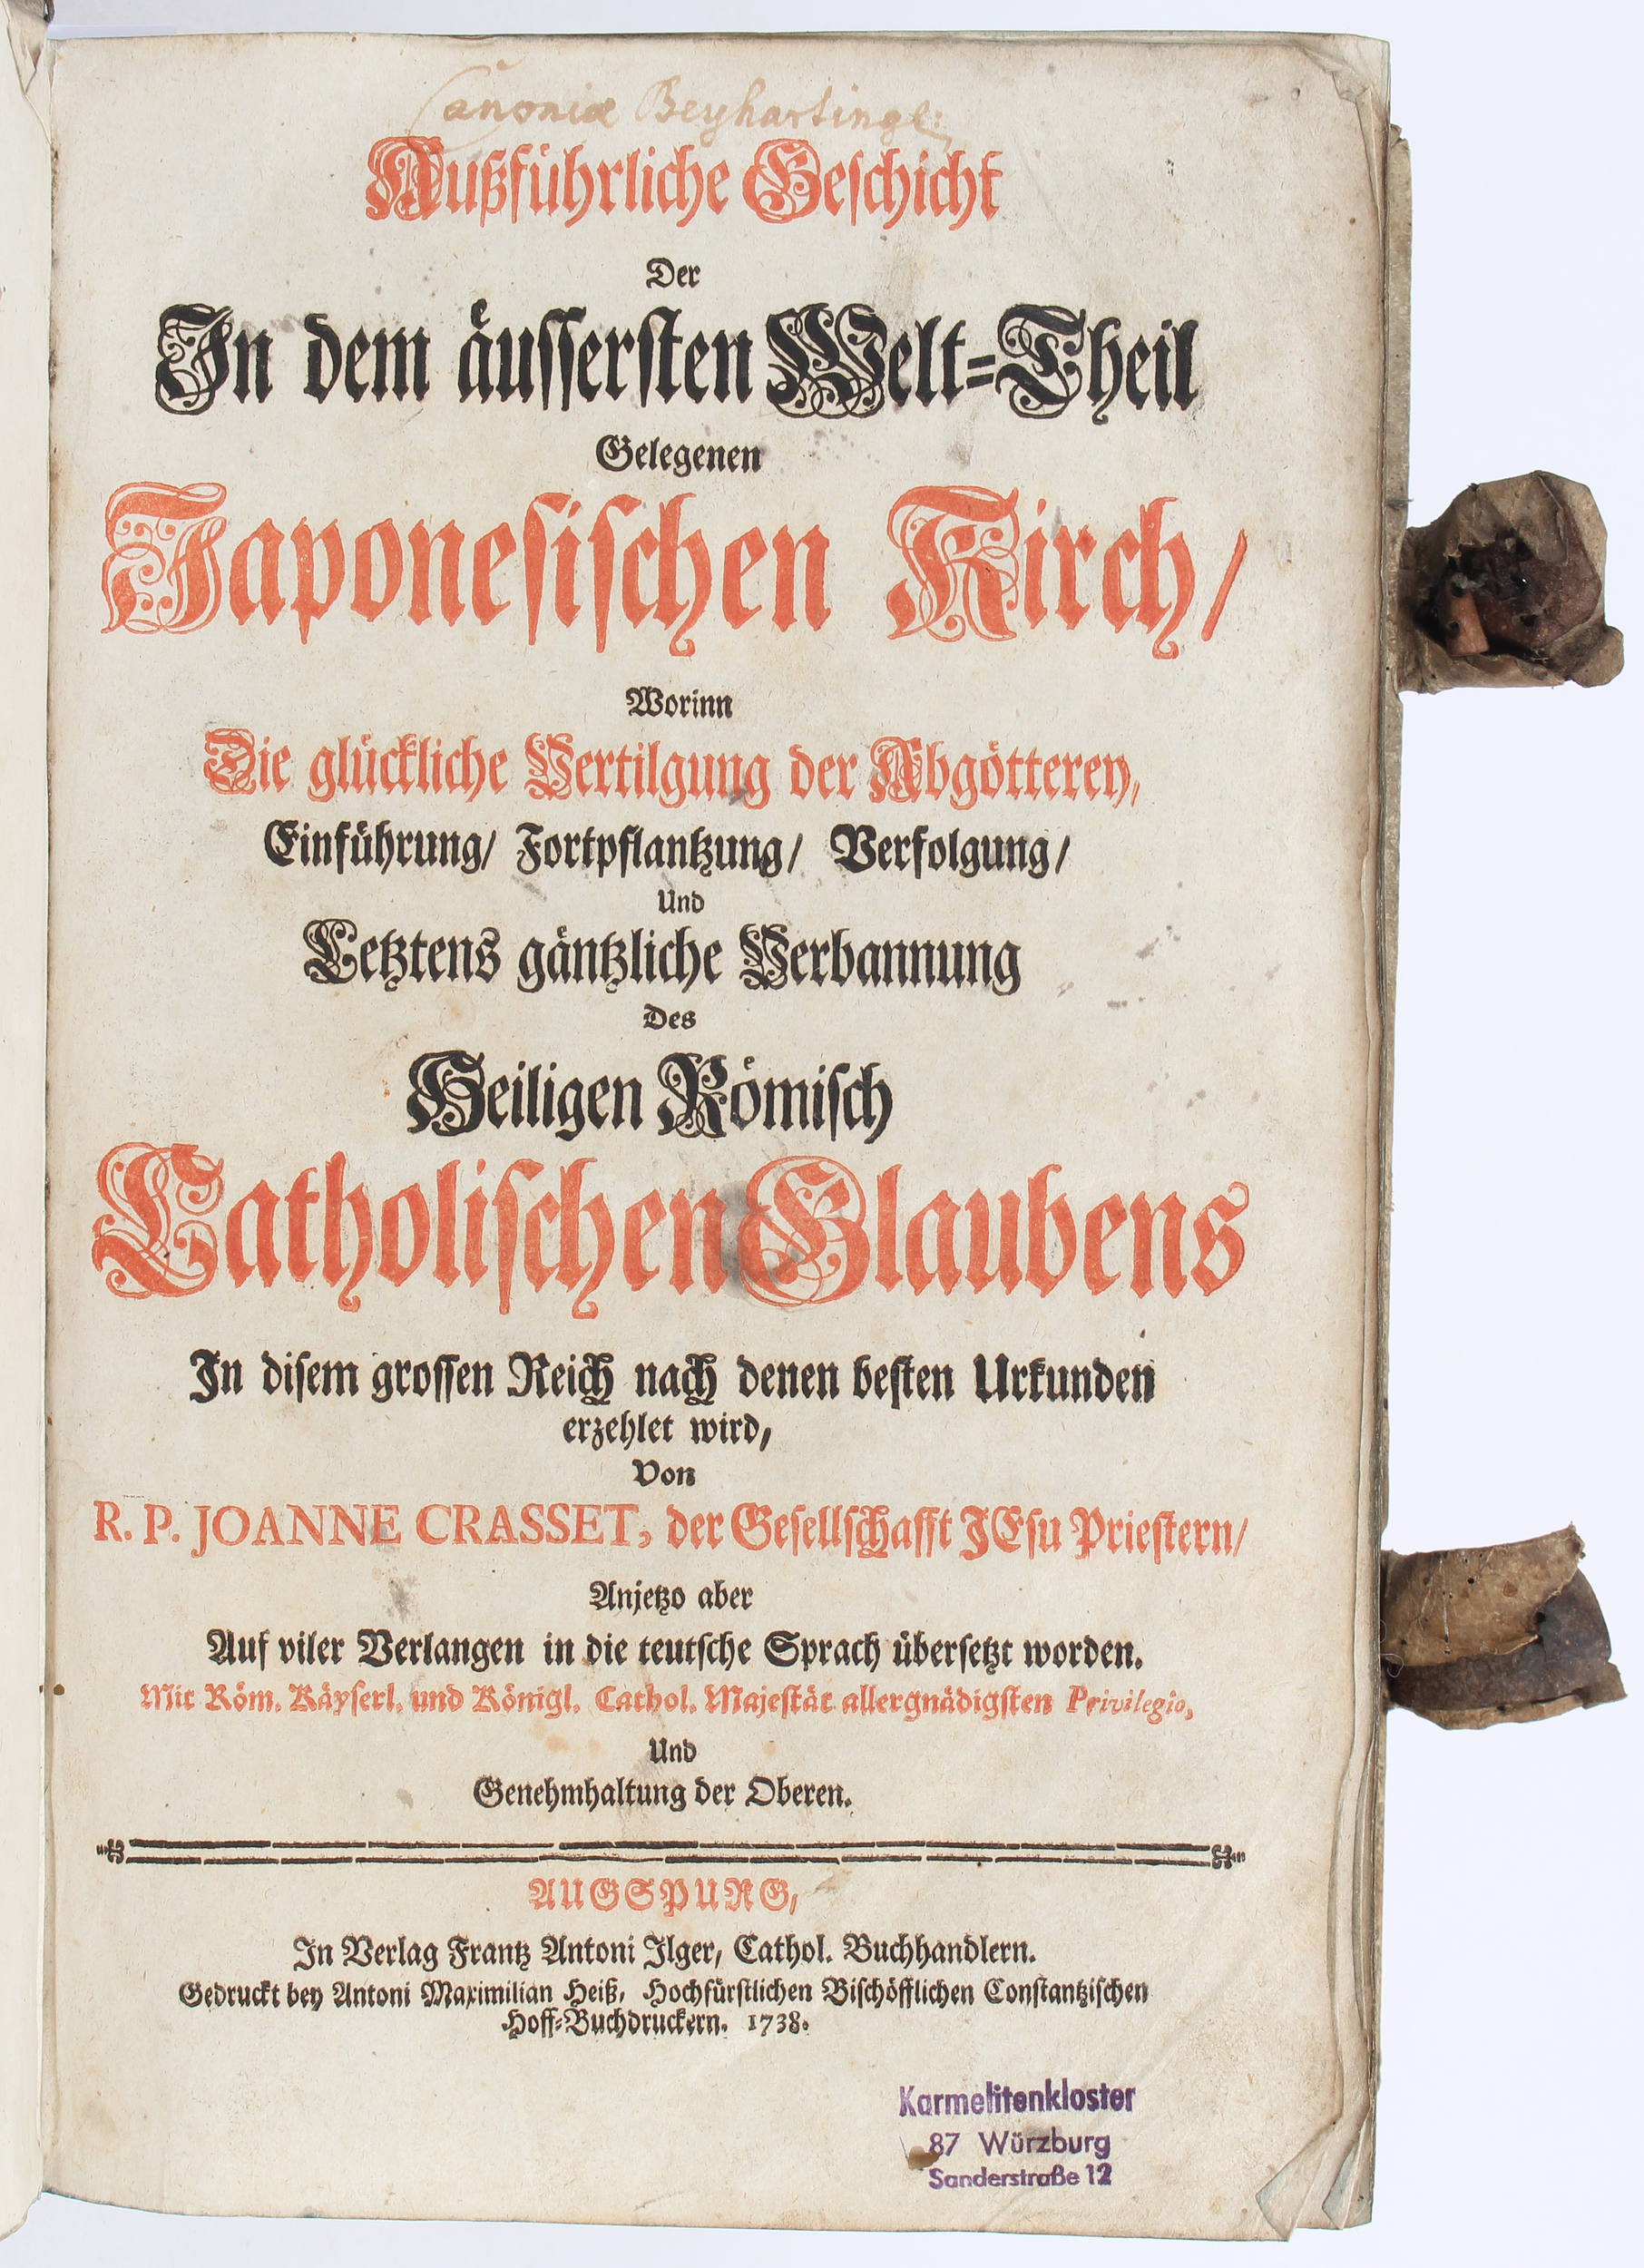 Canoniæ Beyhartinge:
Außführliche Geschicht
Der
In dem äussersten Welt=Theil
Gelegenen
Japonesischen Kirch/
Worinn
Die glückliche Vertilgung der Abgötterey,
Einführung/ Fortpflantzung/ Verfolgung/
Und
Letztens gäntzliche Verbannung
Des
Heiligen Römisch
Catholischen Glaubens
In disem grossen Reich nach denen besten Urkunden
erzehlet wird,
Von
R. P. JOANNE CRASSET, der Gesellschafft JEsu Priestern/
Anjetzo aber
Auf viler Verlangen in die teutsche Sprach übersetzt worden.
Mit Röm. Käyserl. und Königl. Cathol. Majestät allergnädigsten Privilegio,
Und
Genehmhaltung der Oberen.
AUGSPURG,
In Verlag Frantz Antoni Ilger, Cathol. Buchhandlern.
Gedruckt bey Antoni Maximilian Heiß, Hochfürstlichen Bischöfflichen Constantzischen
Hoff=Buchdruckern. 1738.
Karmelitenkloster
87 Würzburg
Sanderstraße 12